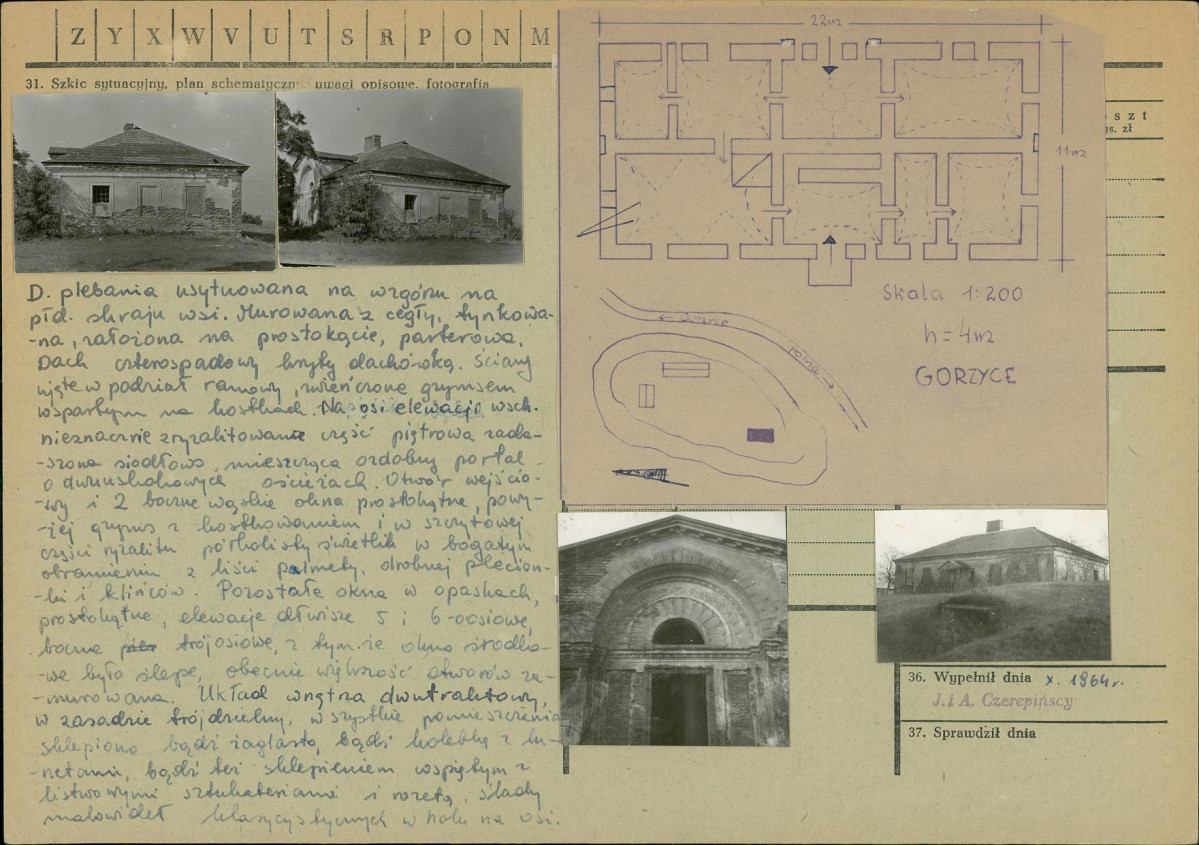 Z Y X W V U T S R P O N M
31. Szkic sytuacyjny, plan schematyczn uwagi opisowe, fotografia
D. plebania usytuowana na wzgórzu na
płd. skraju wsi. Murowana z cegły, tynkowa-
-na, założona na prostokącie, parterowa.
Dach czterospadowy kryty dachówką. Ściany
ujęte w podział ramowy, zwieńczone gzymsem
wspartym na kostkach. Na osi elewacji wsch.
nieznacznie zryzalitowana część piętrowa zada-
-szona siodłowo, mieszcząca ozdobny portal
o dwuuskokowych ościeżach. Otwór wejścio-
-wy i 2 boczne wąskie okna prostokątne, powy-
-żej gzyms z kostkowaniem i w szczytowej
części ryzalitu półkolisty świetlik w bogatym
obramieniu z liści palmety, drobnej plecion-
-ki i klińców. Pozostałe okna w opaskach,
prostokątne, elewacje dłuższe 5 i 6-osiowe,
boczne trójosiowe, z tym że okno środko-
-we było ślepe, obecnie większość otworów za-
-murowana. Układ wnętrza dwutraktowy,
w zasadzie trójdzielny, wszystkie pomieszczenia
sklepione bądź żaglasto, bądź kolebką z lu-
-netami, bądź też sklepieniem wspiętym z
listwowymi sztukateriami i rozetą, ślady
malowideł klasycystycznych w holu na osi.
22m
11m
Skala 1:200
h=4m
GORZYCE
polna
oszt
s. zł
36. Wypełnił dnia X. 1964r.
J. i A. Czerepińscy
37. Sprawdził dnia